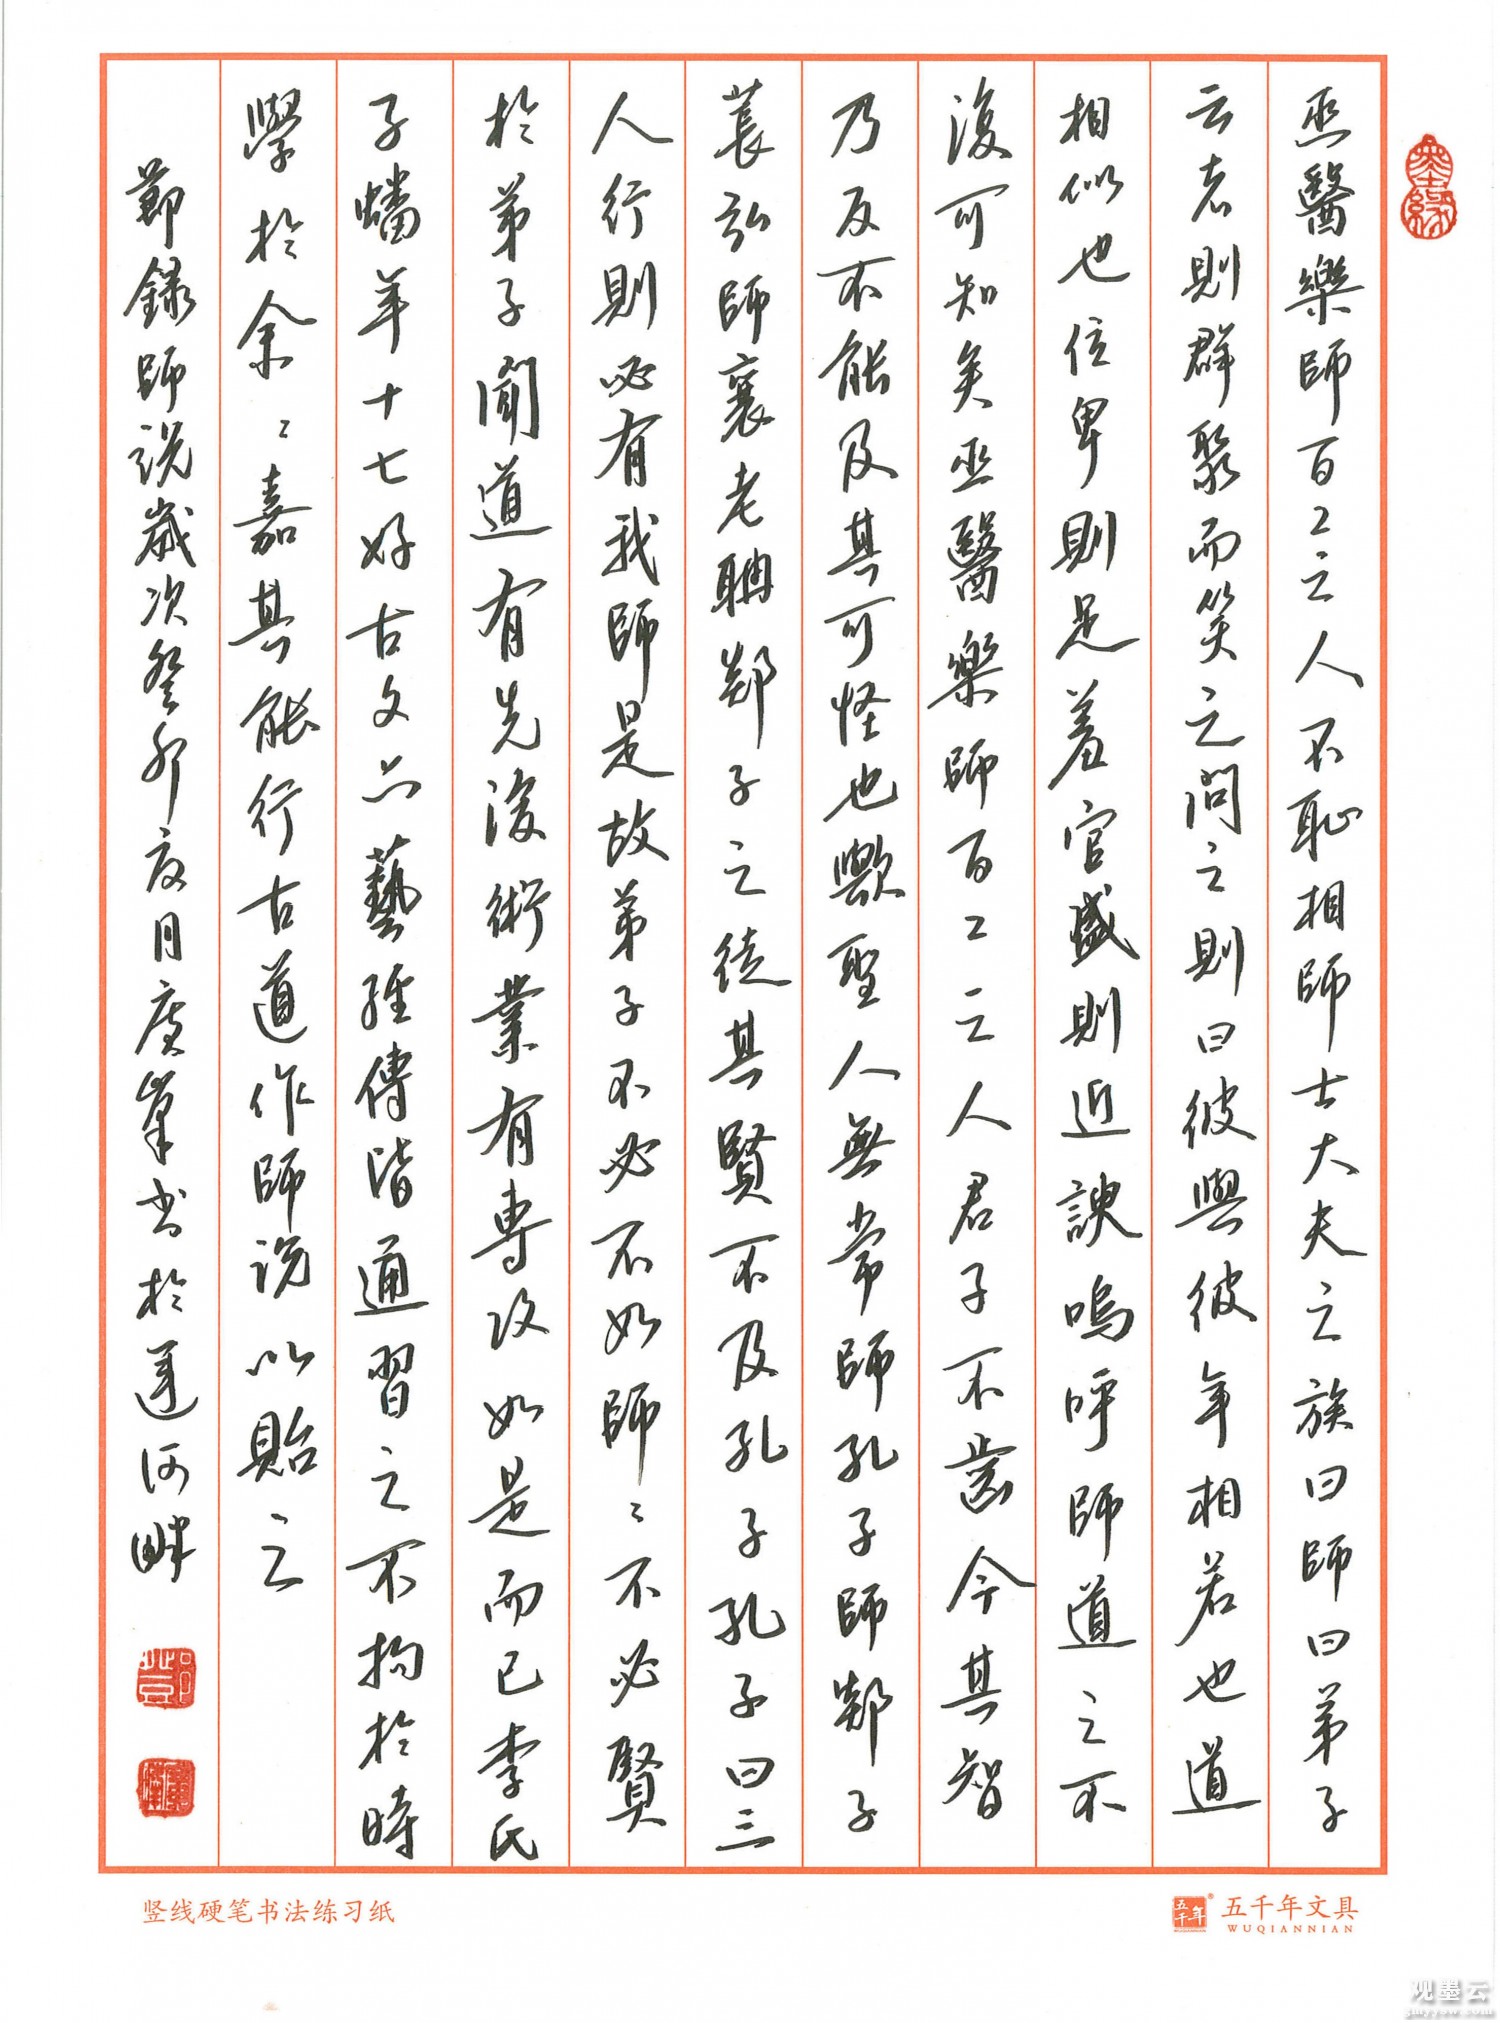 巫醫樂師百工之人不恥相師士大夫之族曰師曰弟子
云者則群聚而笑之問之則曰彼與彼年相若也道
相似也位卑則足羞官盛則近諛嗚呼師道之不
復可知矣巫醫樂師百工之人君子不齒今其智
乃反不能及其可怪也歟聖人無常師孔子師郯子
萇弘師襄老聃郯子之徒其賢不及孔子孔子曰三
人行則必有我師是故弟子不必不如師〻不必賢
於弟子聞道有先後術業有專攻如是而已李氏
子蟠年十七好古文六藝經傳皆通習之不拘於時
學於余〻嘉其能行古道作師說以貽之
節錄師說歲次癸卯夏月廣峯書於運河畔
墨緣
竖线硬笔书法练习纸
五千年
五千年文具
WUQIANNIAN
观墨云
gmyyow.com